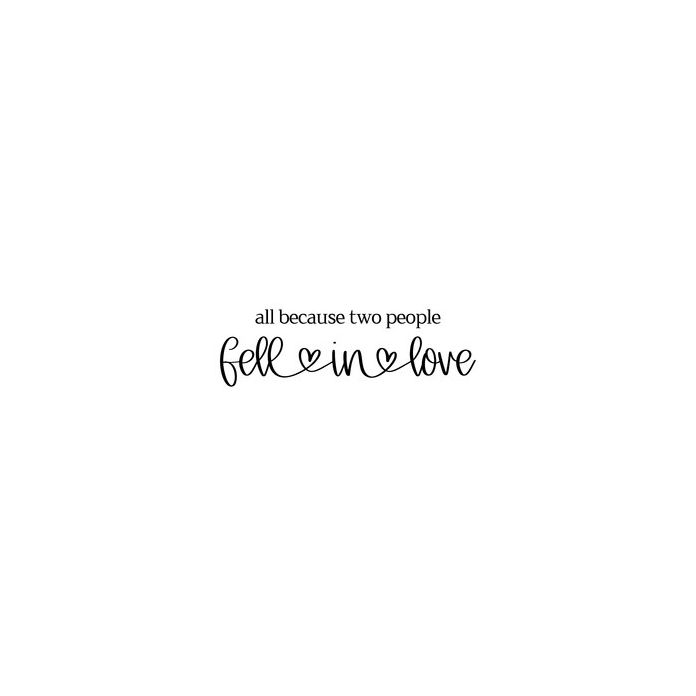 all because two people
fell in love